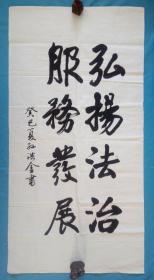 弘揚法治
服務發展
癸巳夏孫洪金書